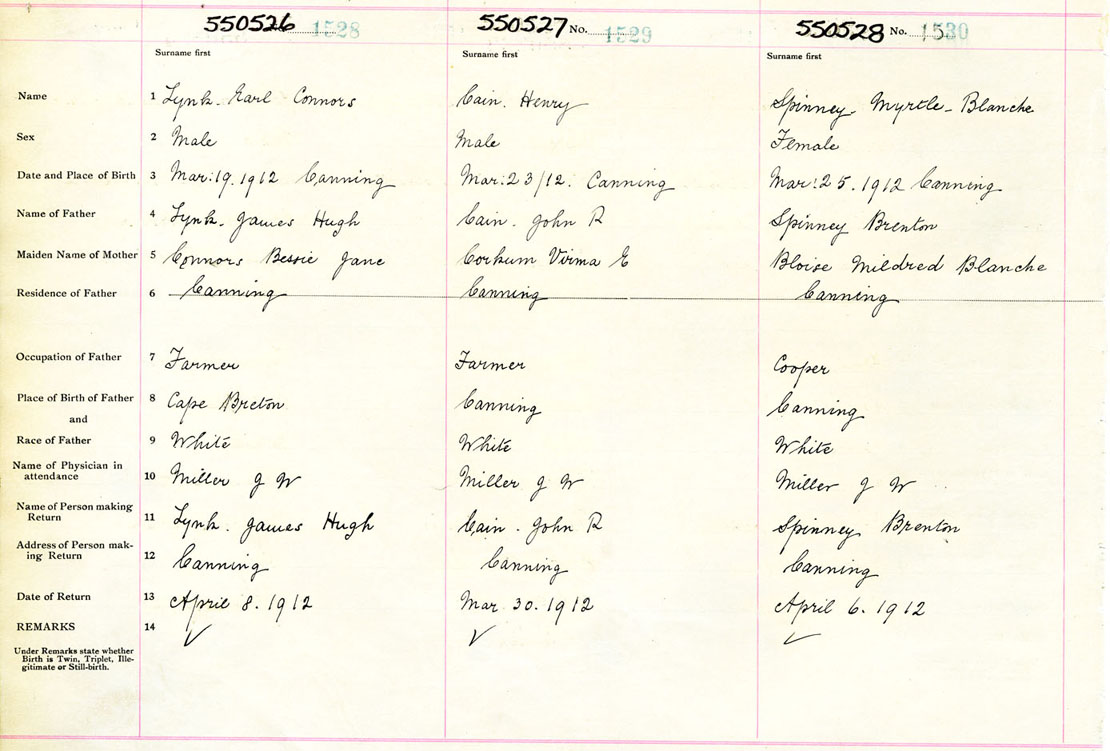 550526 1528 550527 No. 1529 550528 No. 1530
Surname first Surname first Surname first
Name 1 Lynk. Earl Connors Cain. Henry Spinney - Myrtle - Blanche
Sex 2 Male Male Female
Date and Place of Birth 3 Mar: 19. 1912 Canning Mar: 23/12. Canning Mar: 25. 1912 Canning
Name of Father 4 Lynk. James Hugh Cain. John R Spinney Brenton
Maiden Name of Mother 5 Connors Bessie Jane Corkum Virma E Bloise Mildred Blanche
Residence of Father 6 Canning Canning Canning
Occupation of Father 7 Farmer Farmer Cooper
Place of Birth of Father 8 Cape Breton Canning Canning
and
Race of Father 9 White White White
Name of Physician in
attendance 10 Miller J W Miller J W Miller J W
Name of Person making
Return 11 Lynk. James Hugh Cain. John R Spinney Brenton
Address of Person mak-
ing Return 12 Canning Canning Canning
Date of Return 13 April 8. 1912 Mar. 30. 1912 April 6. 1912
REMARKS 14 ✓ ✓ ✓
Under Remarks state whether
Birth is Twin, Triplet, Ille-
gitimate or Still-birth.